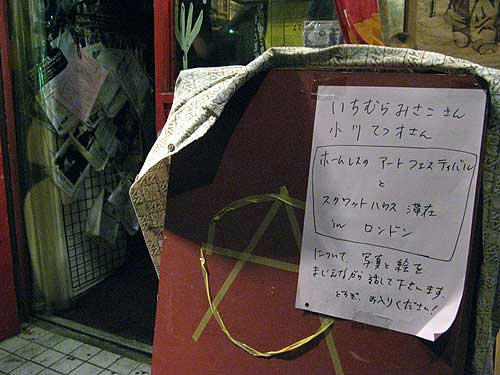 いちむらみさこさん
小川てつオさん
ホームレスの アートフェスティバル
と
スクワットハウス 滞在
in ロンドン
について、写真と絵を
まじえながら話して下さいます。
どうぞ、お入りください!